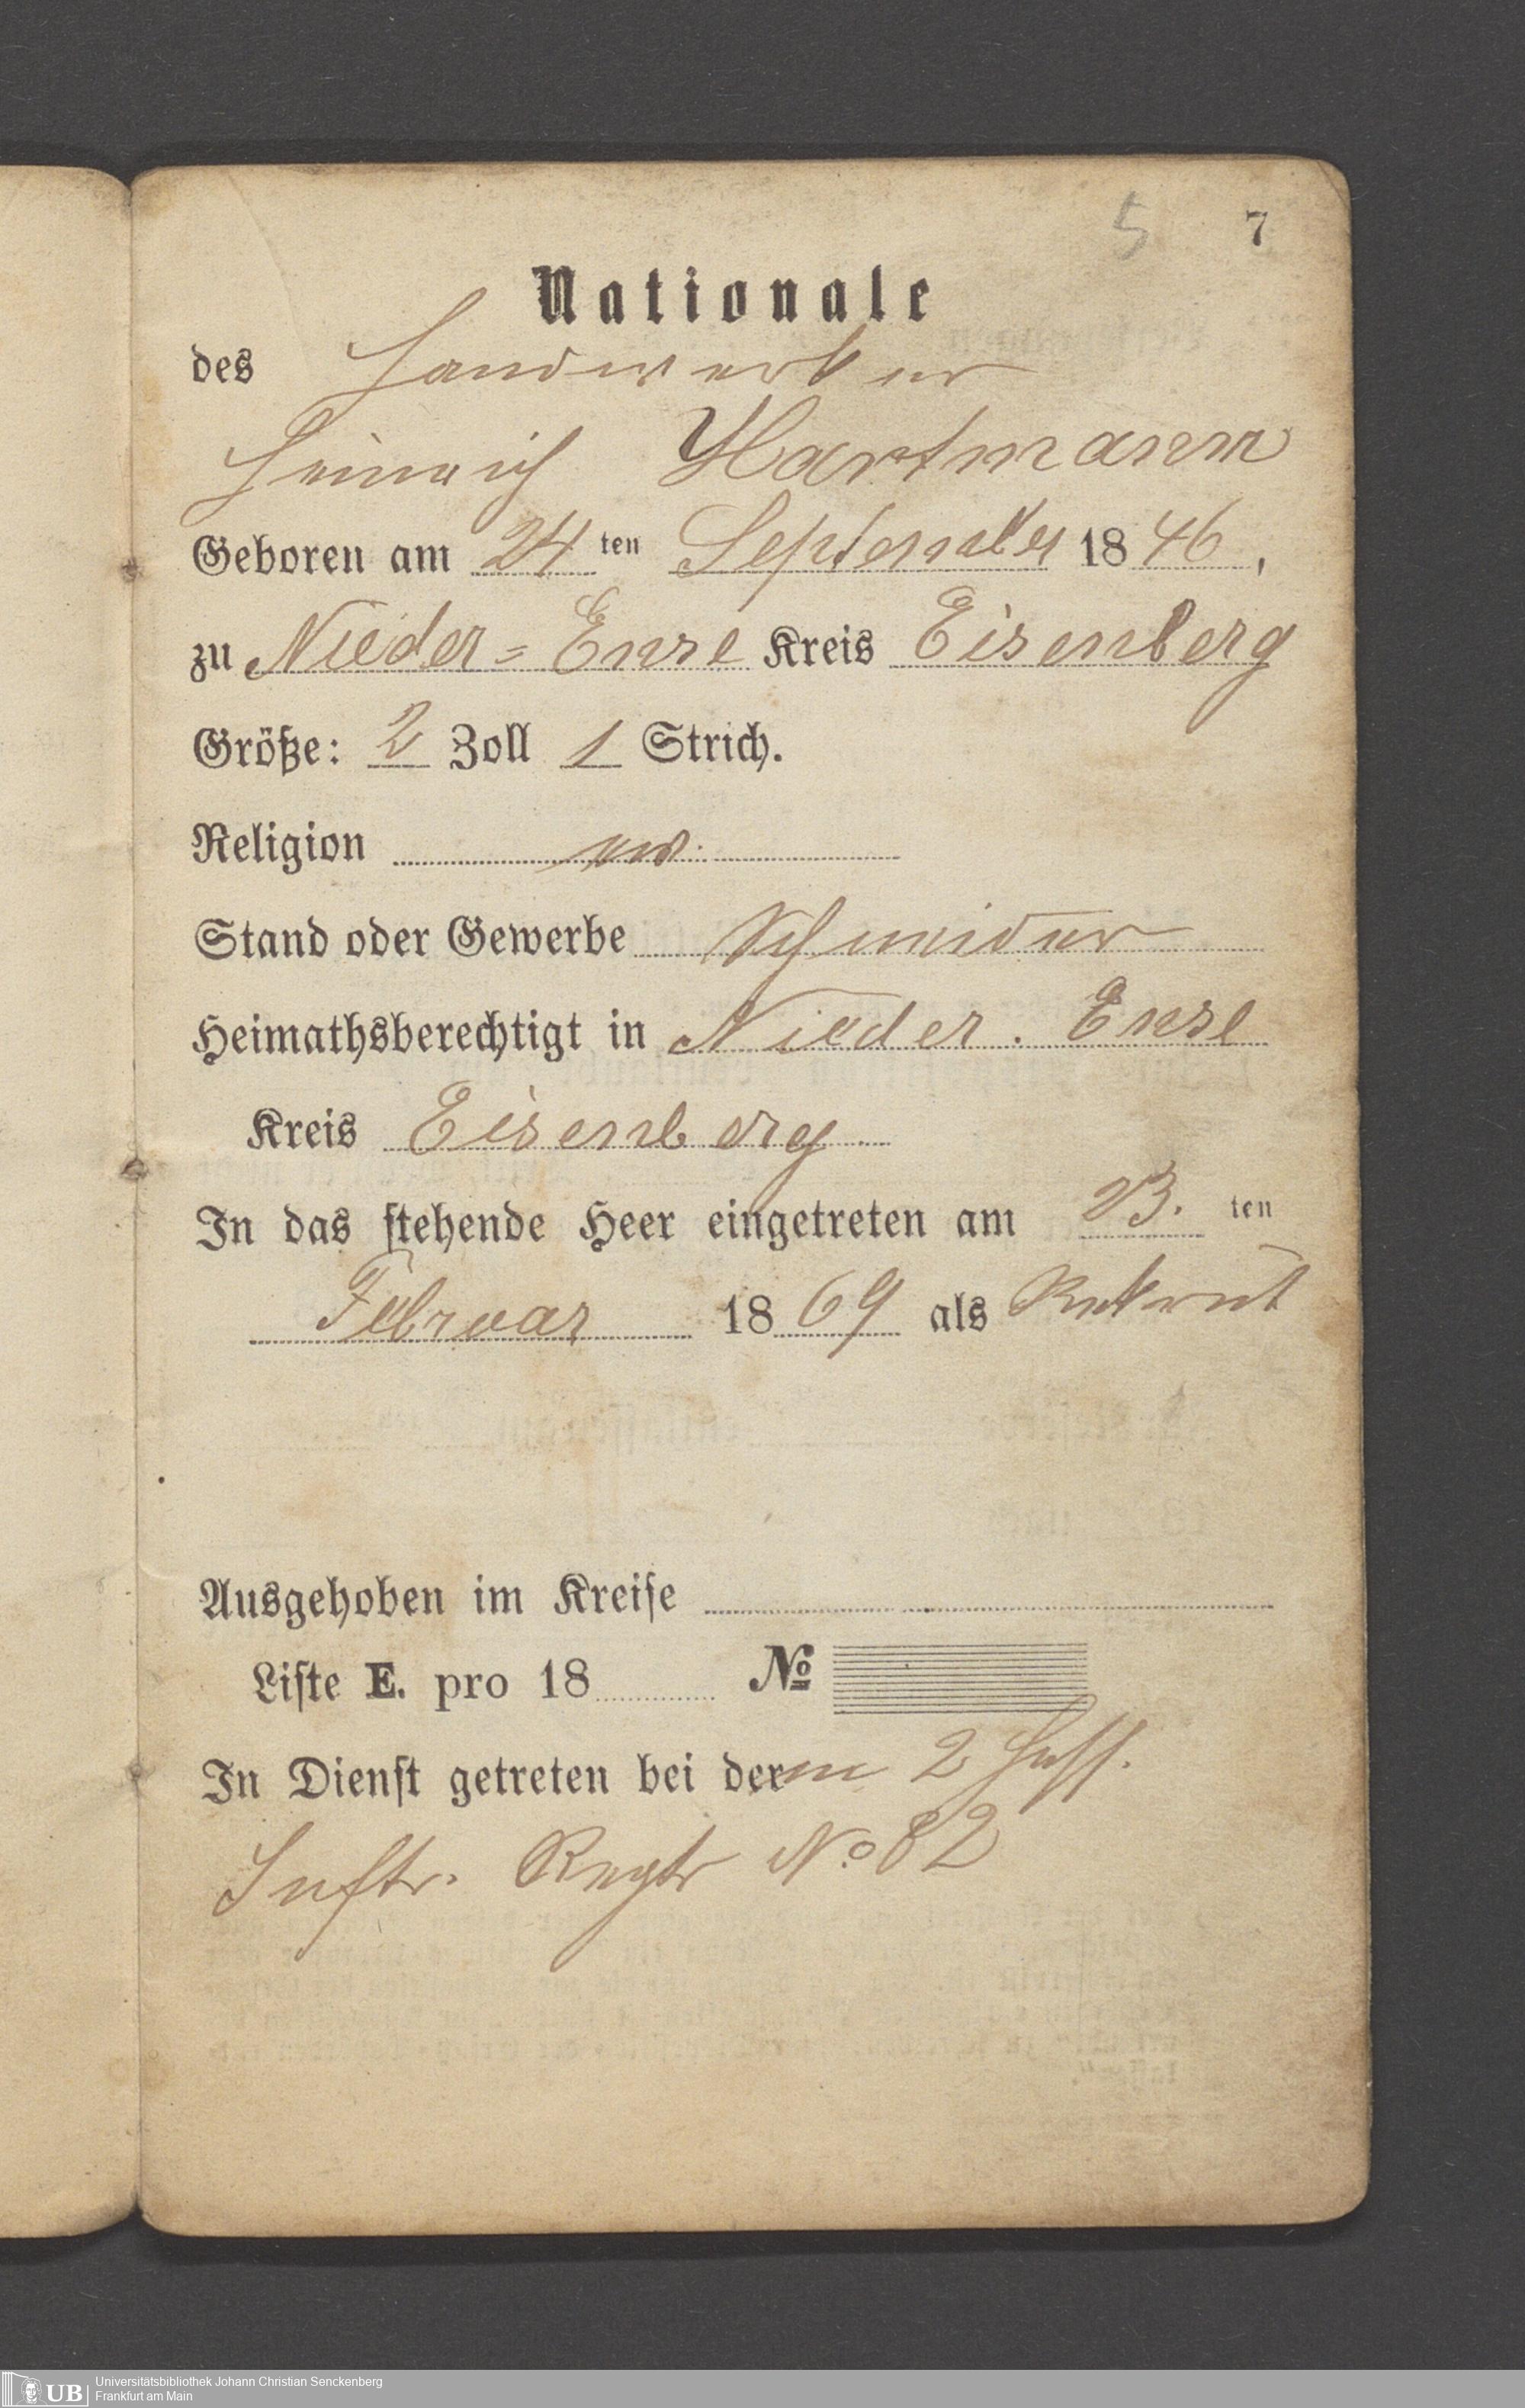 5 7
Nationale
des Handwerker
Heinrich Hartmann
Geboren am 24 ten September 1846,
zu Nieder=Ense Kreis Eisenberg
Größe: 2 Zoll 1 Strich.
Religion ev.
Stand oder Gewerbe Schneider
Heimathsberechtigt in Nieder. Ense
Kreis Eisenberg
In das stehende Heer eingetreten am 23. ten
Februar 1869 als Rekrut
Ausgehoben im Kreise
Liste E. pro 18 No
In Dienst getreten bei derm 2 Hess.
Inftr. Regtr No 82
UB Universitätsbibliothek Johann Christian Senckenberg
Frankfurt am Main